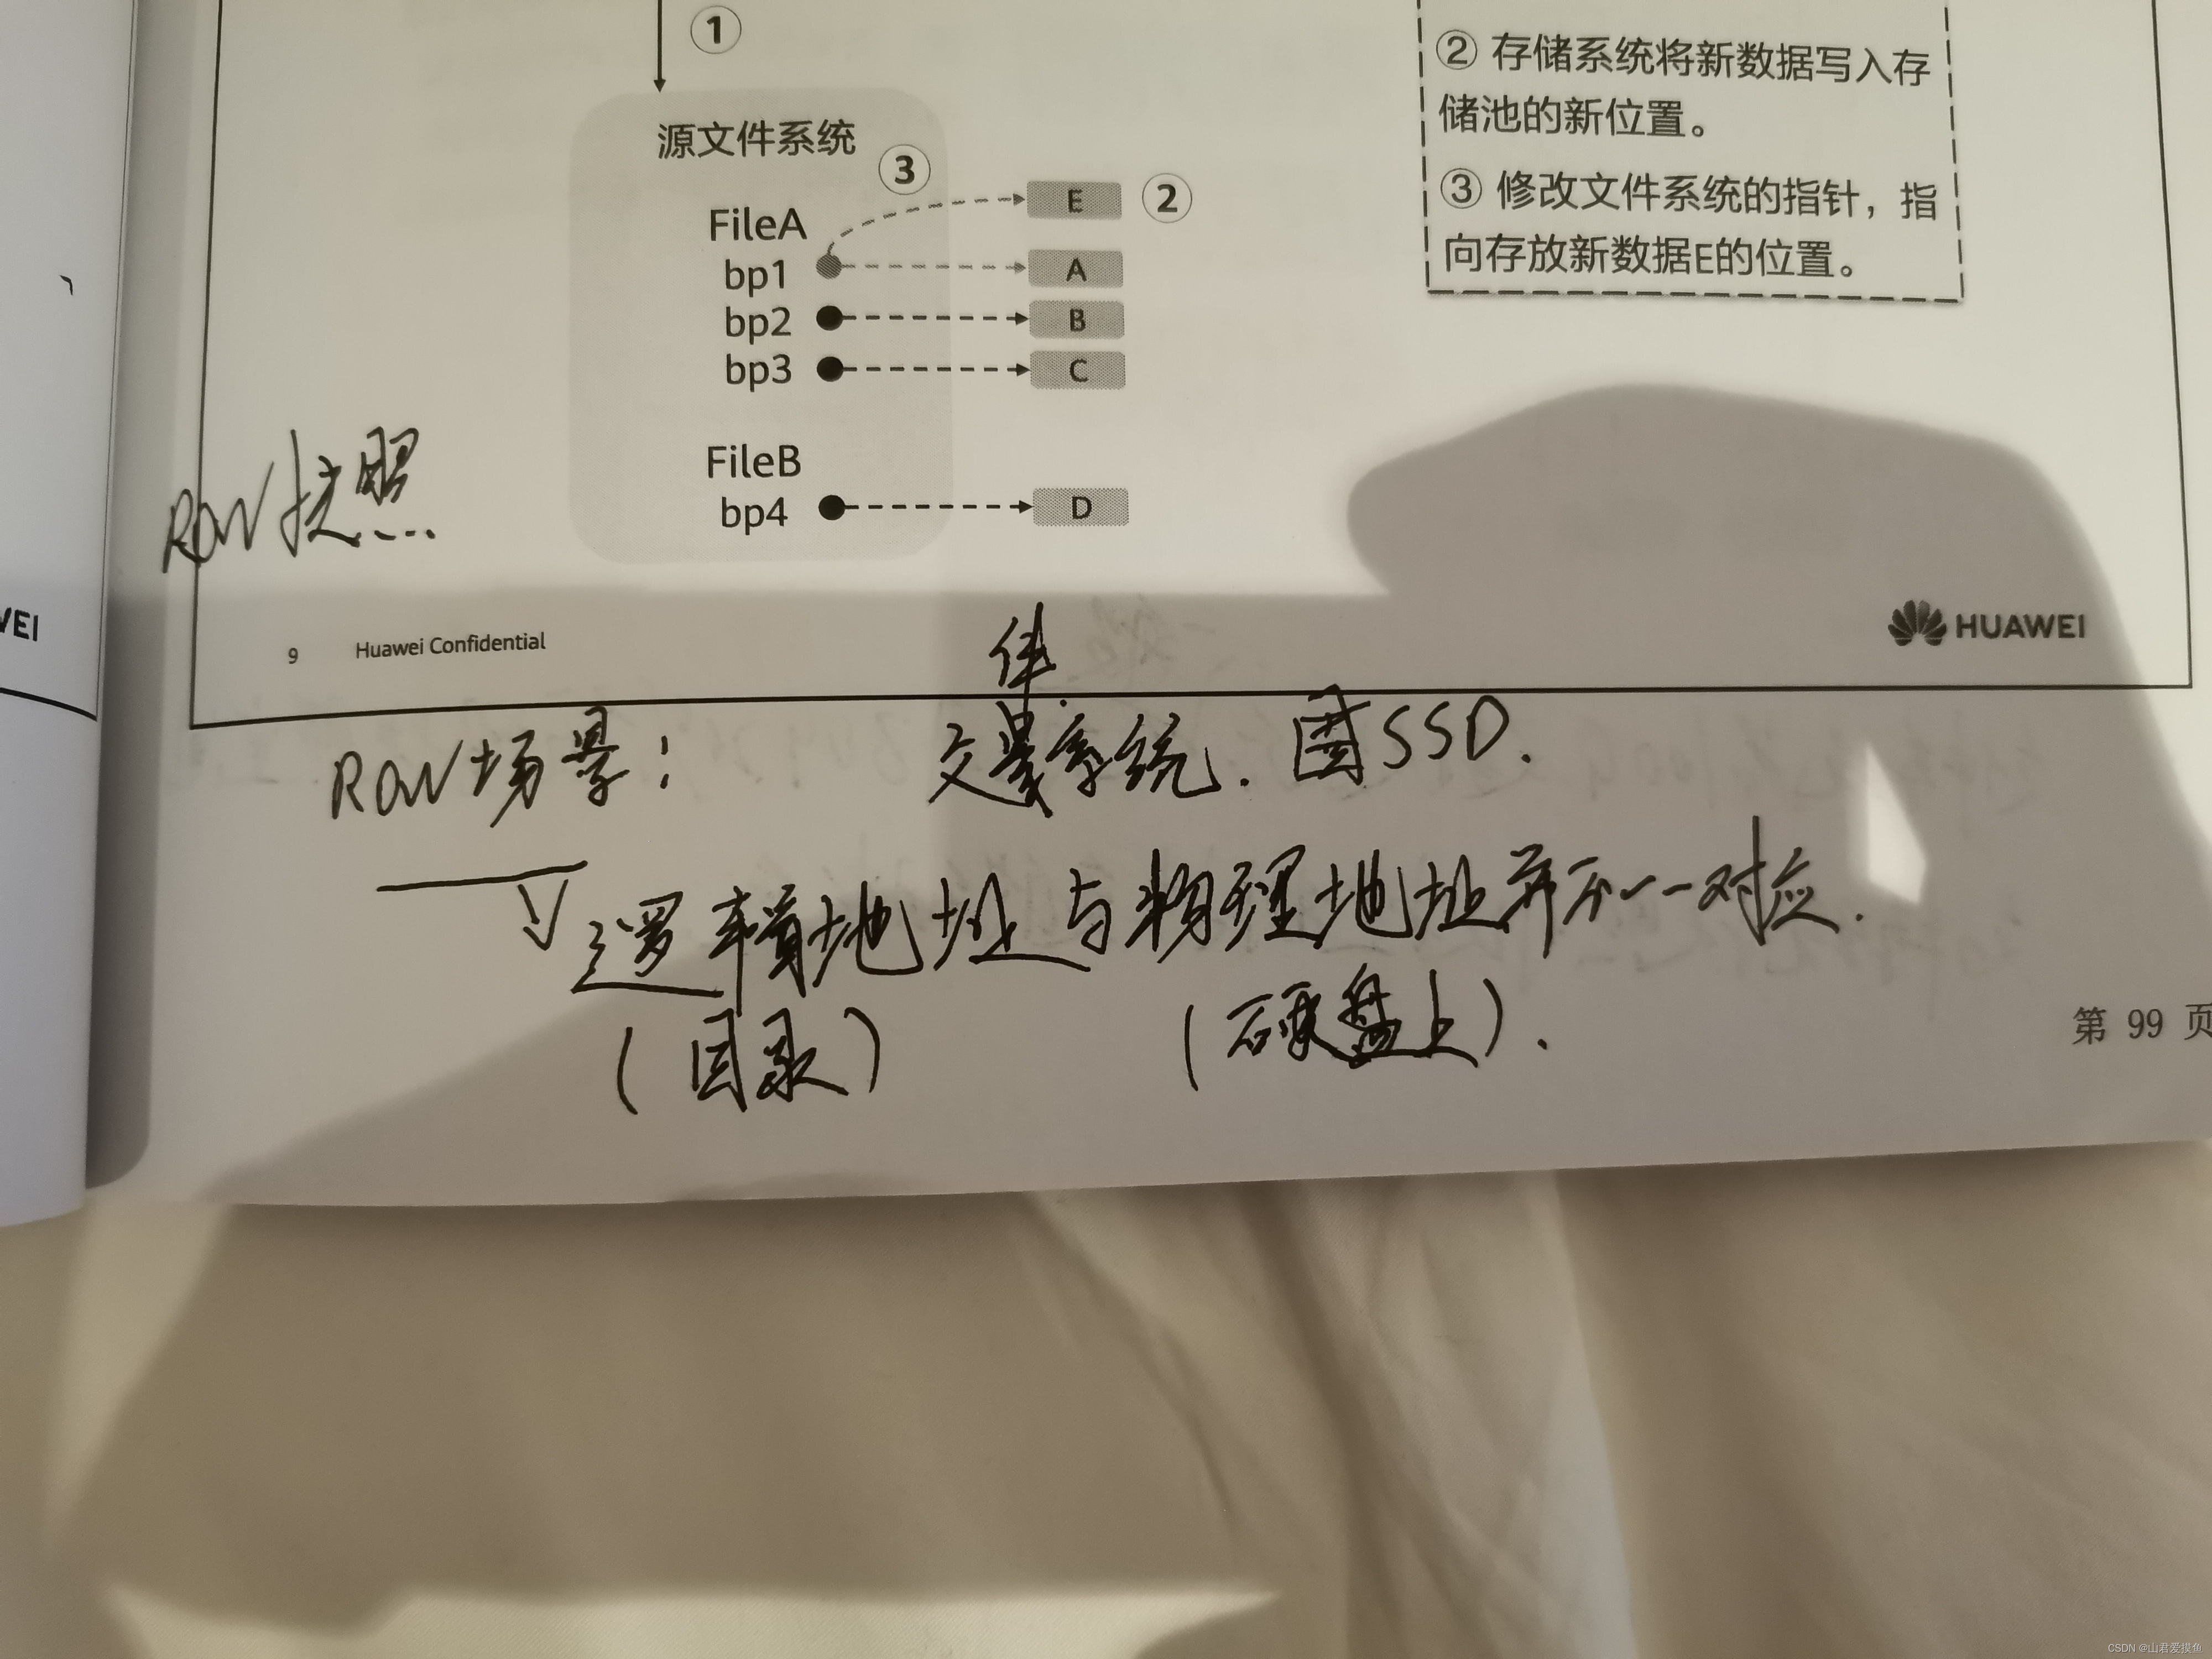 ①
② 存储系统将新数据写入存
储池的新位置。
③ 修改文件系统的指针，指
向存放新数据E的位置。
源文件系统
③
E ②
FileA
bp1 A
bp2 B
bp3 C
FileB
bp4 D
ROW快照
VEI
9 Huawei Confidential
HUAWEI
件
ROW场景： 文系统. 固SSD.
逻辑地址与物理地址并不一一对应.
(目录) (硬盘上).
第 99 页
CSDN @山君爱摸鱼